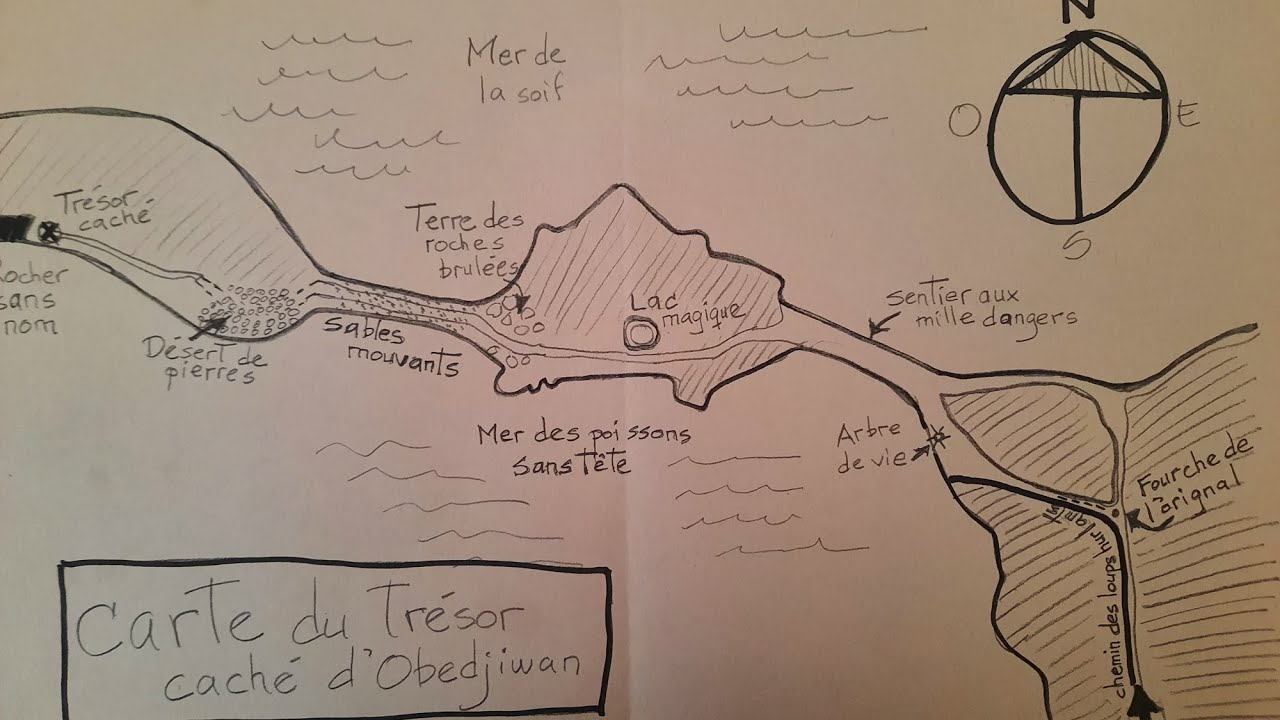 N
Mer de
la soif
O
E
S
Trésor
caché
Terre des
roches
brulées
Rocher
sans
nom
Lac
magique
sentier aux
mille dangers
Sables
mouvants
Désert de
pierres
Mer des poissons
sans tête
Arbre
de vie
Fourche de
l'orignal
chemin des loups hurlants
Carte du Trésor
caché d'Obedjiwan